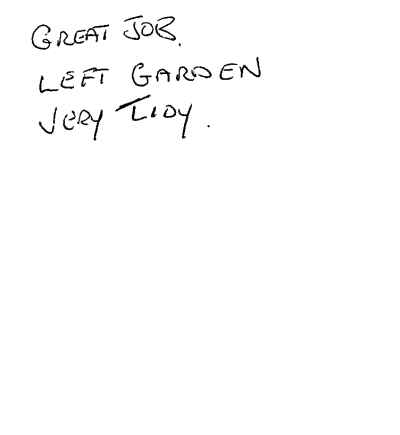 GREAT JOB.
LEFT GARDEN
VERY TIDY.